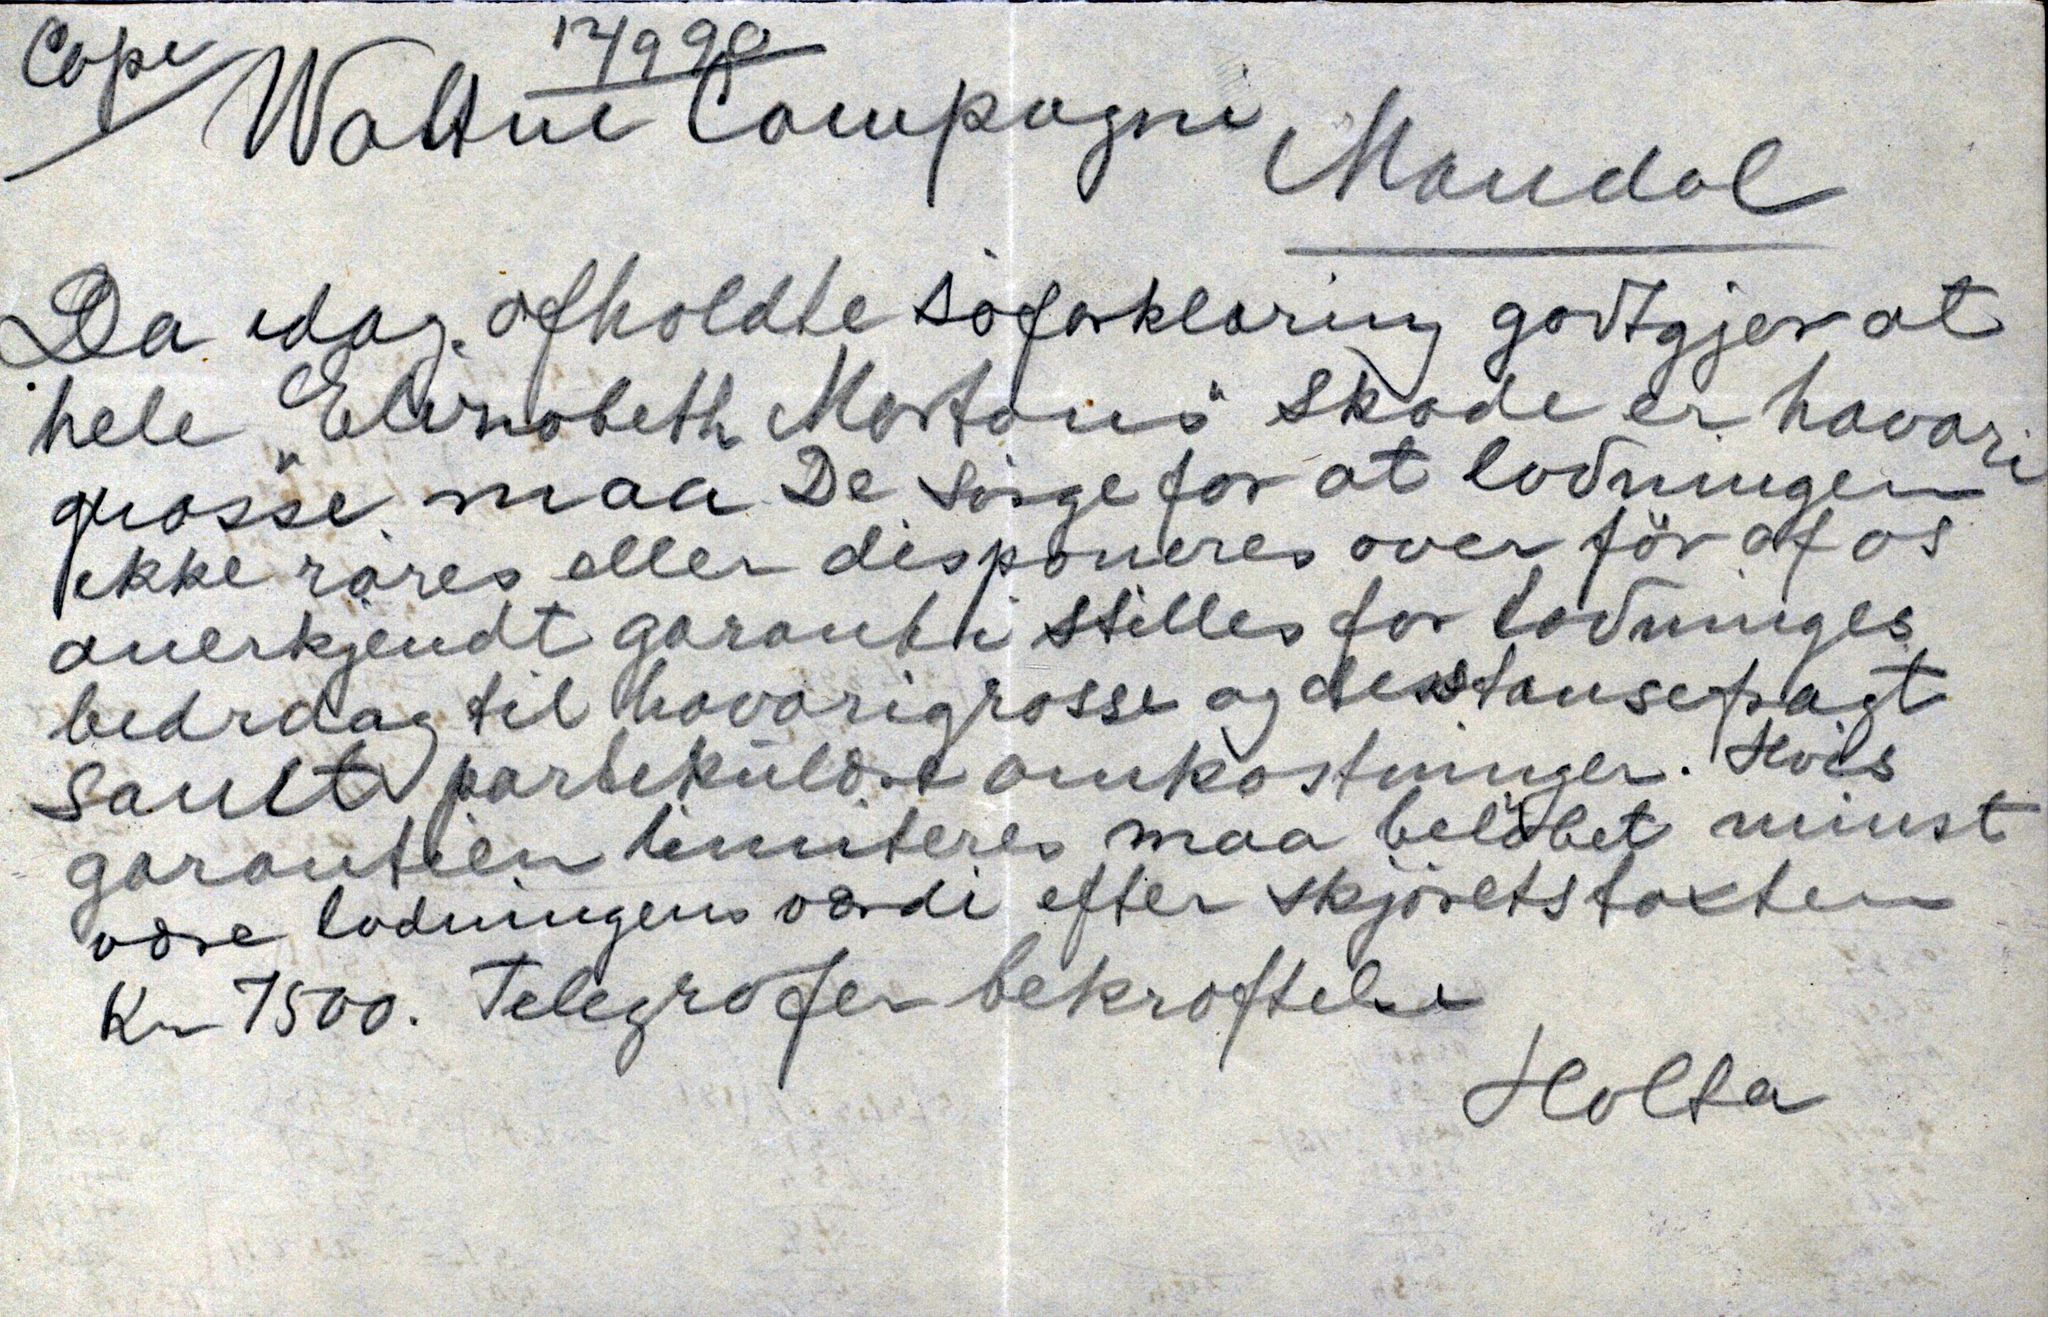 Copi
12/9 90
Wattne Compagni
Mandal
Da idag afholdte söforklaring godtgjør at
hele "Elisabeth Mortons" skade er havari
grosse maa De sörge for at ladningen
ikke röres eller disponeres over för af os
anerkjendt garanti stilles for ladninges
bedrdag til havarigrosse og destansefragt
samt partikülære omkostninger. Hvis
garantien limiteres maa belöbet minst
være ladningens værdi efter skjönetstaxten
Kr 7500. Telegrafer bekræftelse
Holta